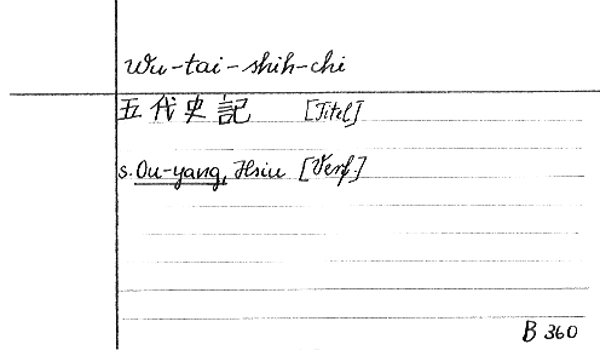 Wu-tai-shih-chi
五代史記 [Titel]
s. Ou-yang, Hsiu [Verf.]
B 360